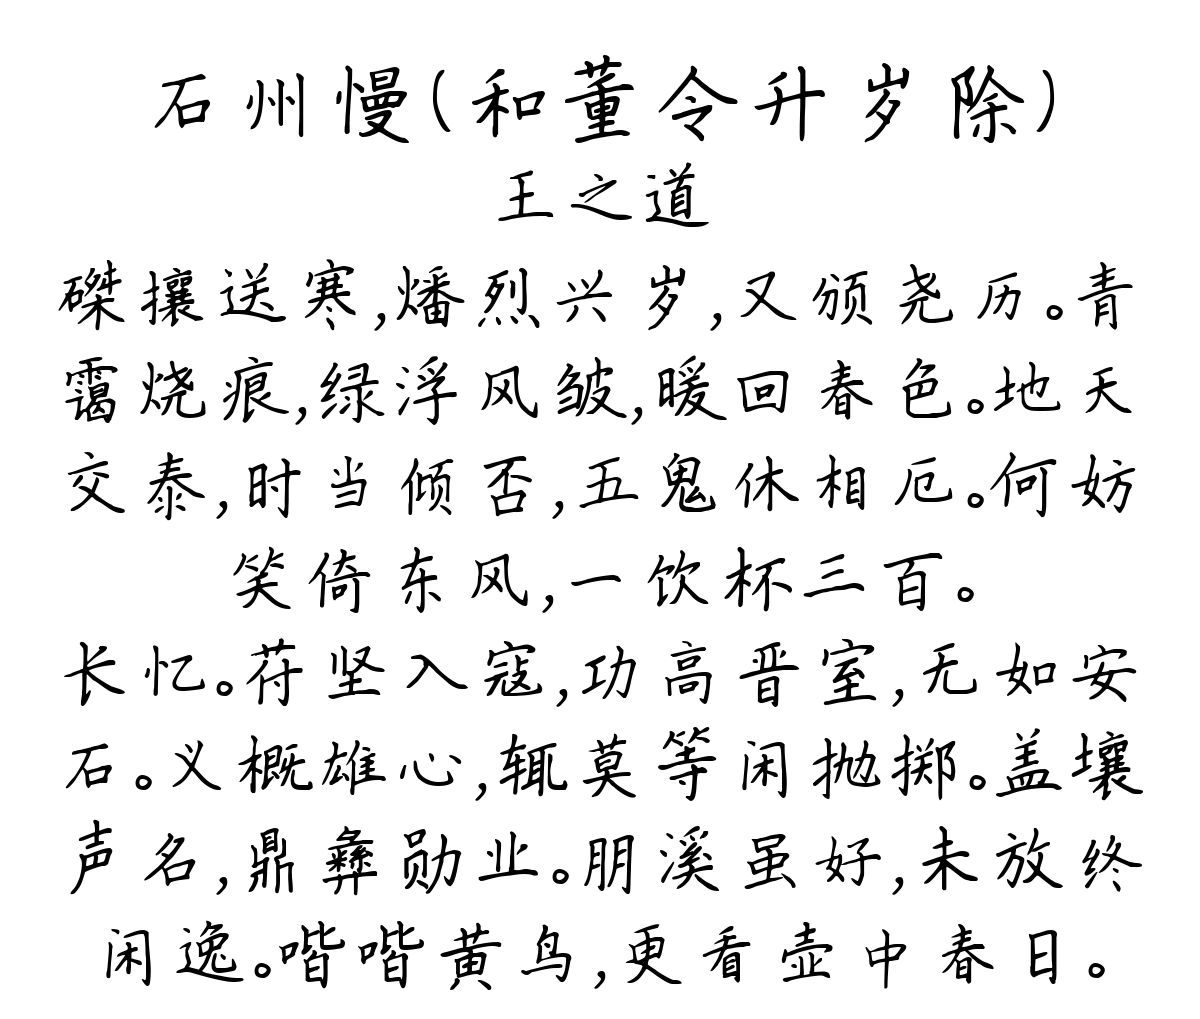 石州慢(和董令升岁除)
王之道
磔攘送寒,燔烈兴岁,又颁尧历。青
霭烧痕,绿浮风皱,暖回春色。地天
交泰,时当倾否,五鬼休相厄。何妨
笑倚东风,一饮杯三百。
长忆。苻坚入寇,功高晋室,无如安
石。义概雄心,辄莫等闲抛掷。盖壤
声名,鼎彝勋业。朋溪虽好,未放终
闲逸。喈喈黄鸟,更看壶中春日。